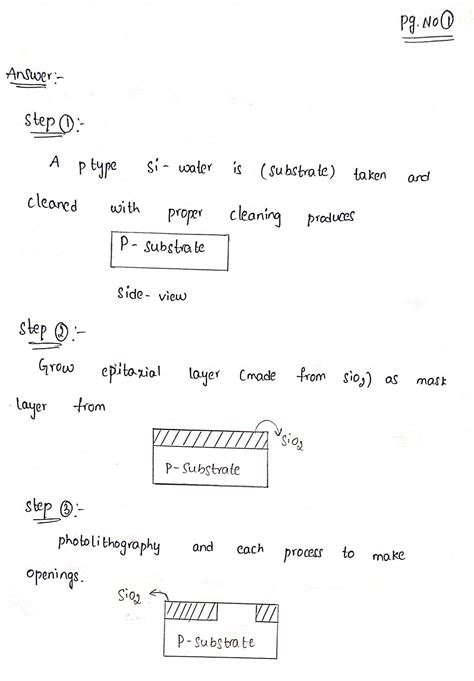 Pg.No ①
Answer:-
Step ①:-
A p type si- water is (substrate) taken and
cleared with proper cleaning produces
P- substrate
side-view
step ②:-
Grow epitaxial layer (made from sio₂) as mask
layer from
SiO₂
P-substrate
step ③:-
photolithography and each process to make
openings.
SiO₂
P-substrate